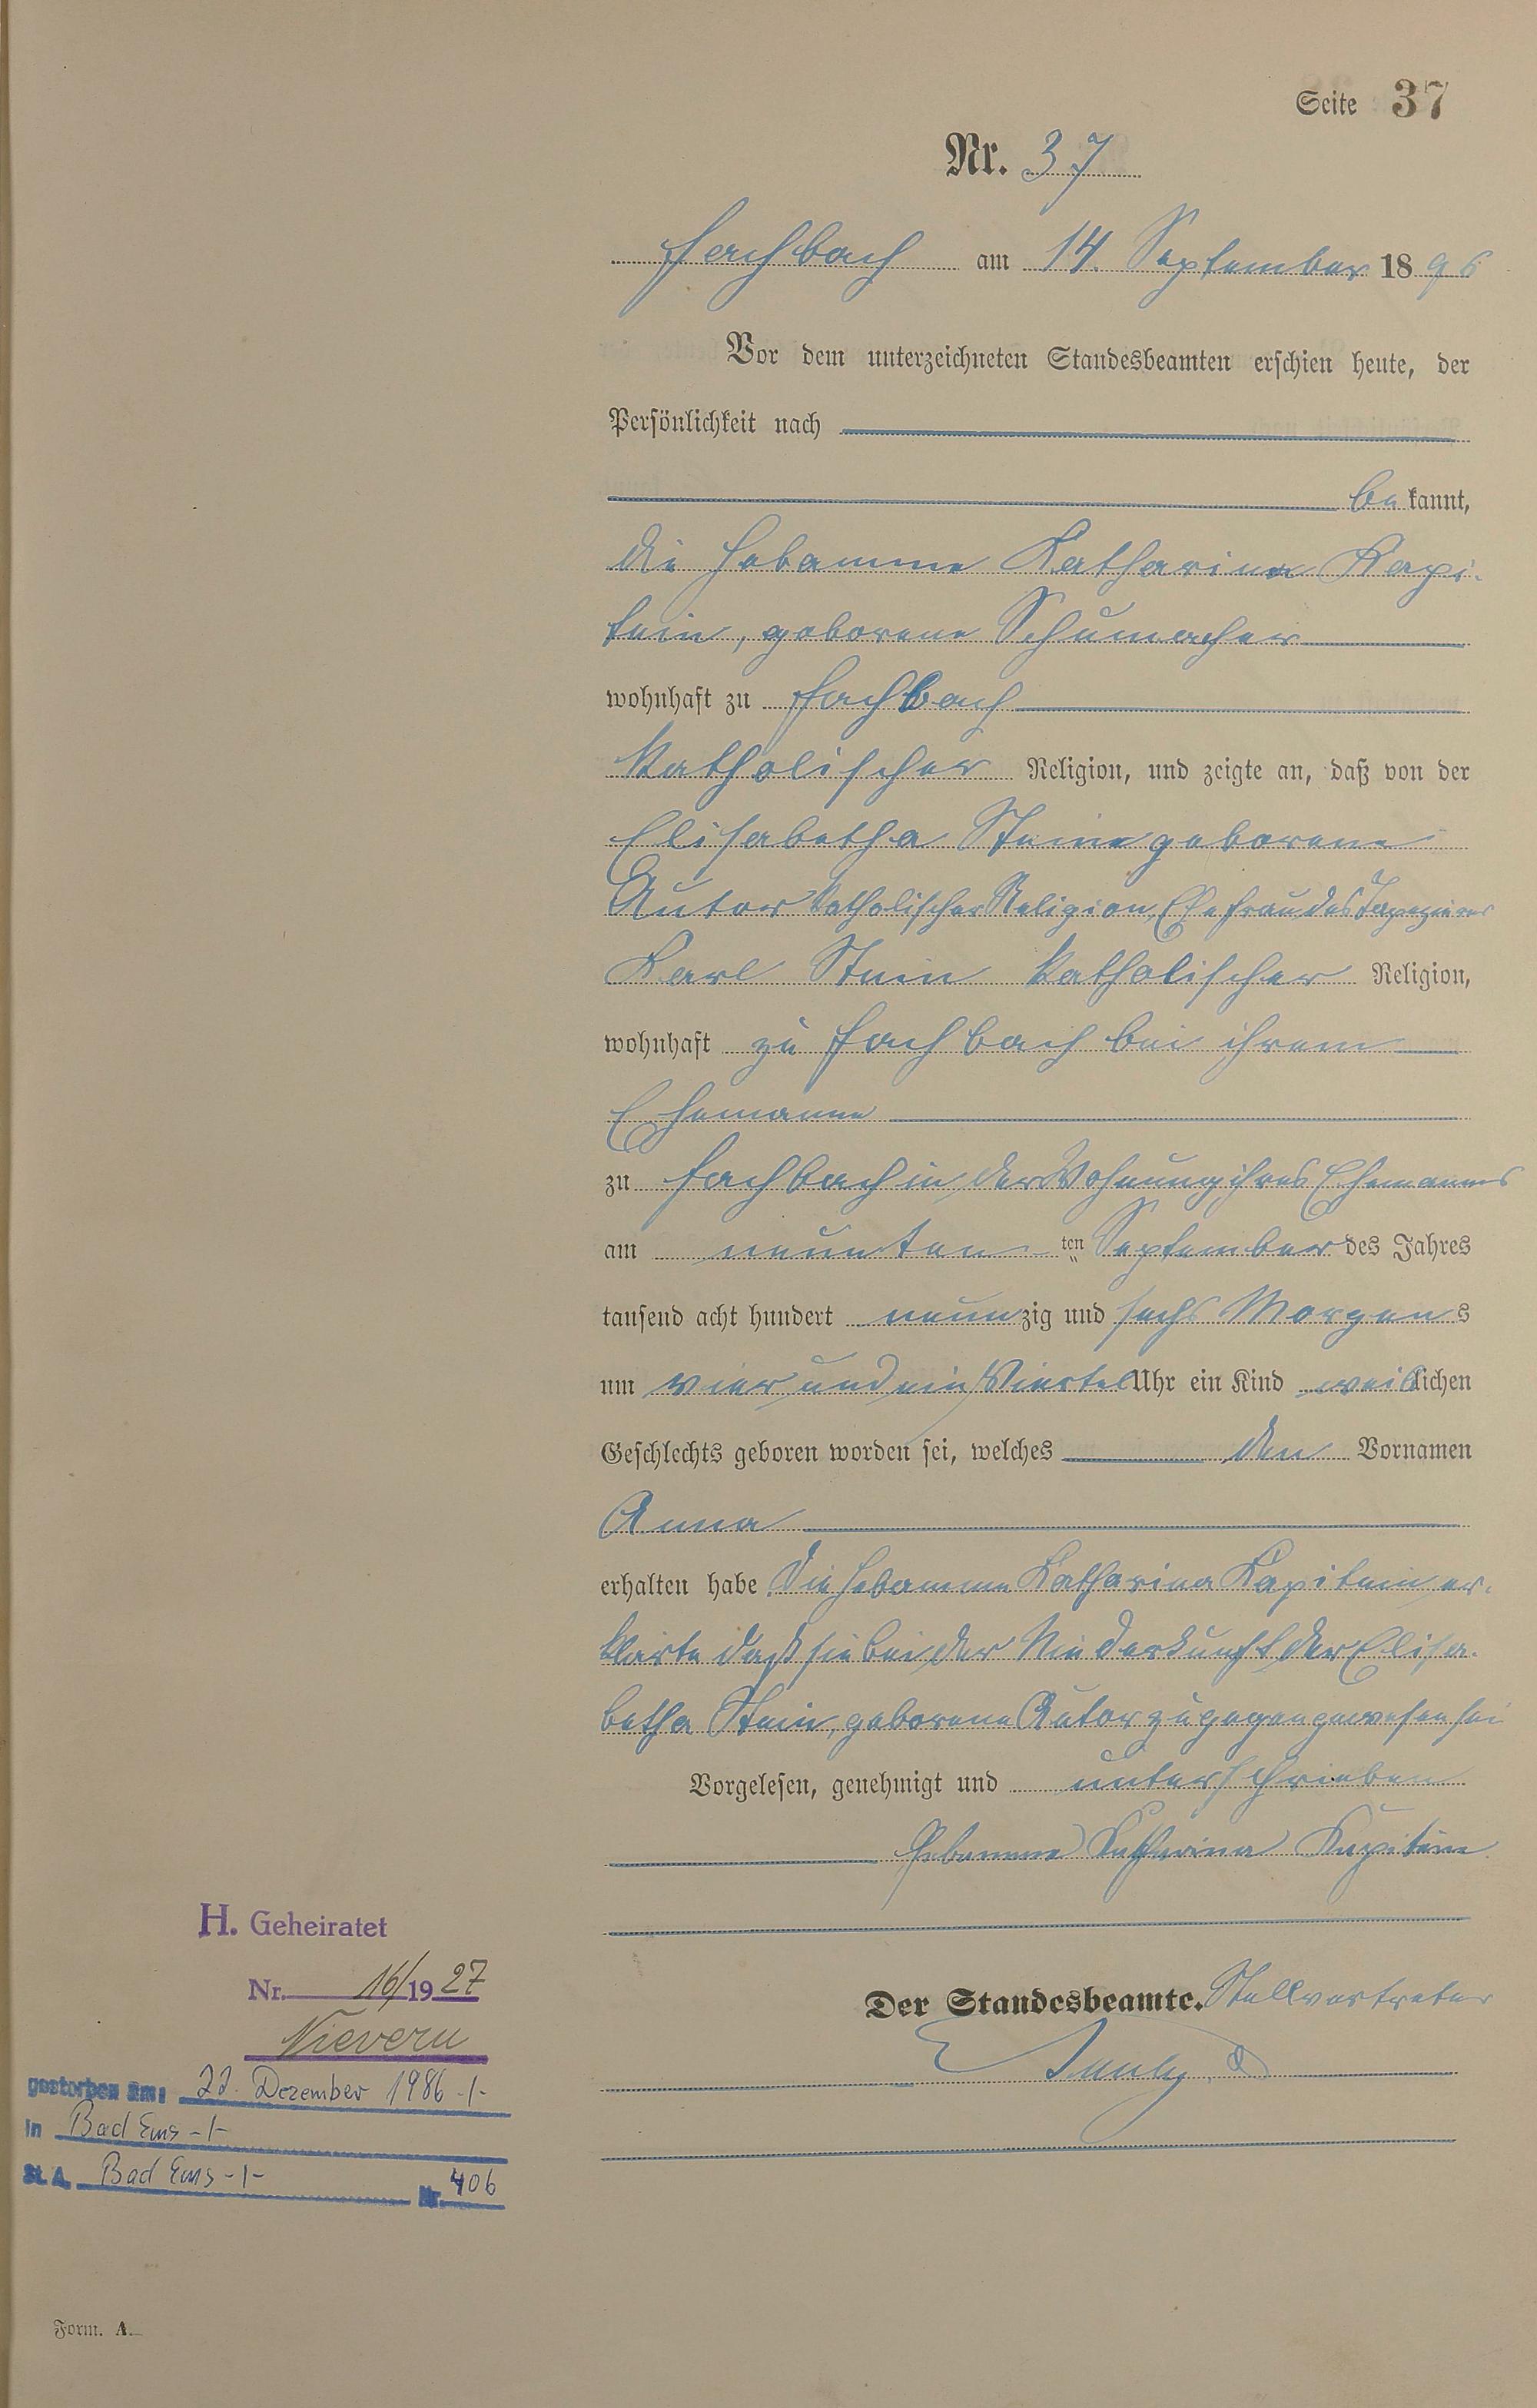 Seite 37
Nr. 37
Fachbach am 14. September 1896
Vor dem unterzeichneten Standesbeamten erschien heute, der
Persönlichkeit nach
bekannt,
die Hebamme Katharina Kapi-
tein, geborene Schumacher
wohnhaft zu Fachbach
katholischer Religion, und zeigte an, daß von der
Elisabetha Stein geborene
Autor katholischer Religion, Ehefrau des Tapezierers
Karl Stein katholischer Religion,
wohnhaft zu Fachbach bei ihrem
Ehemanne
zu Fachbach in der Wohnung ihres Ehemannes
am neunten ten September des Jahres
tausend acht hundert neunzig und sechs Morgens
um vier und ein Viertel Uhr ein Kind weiblichen
Geschlechts geboren worden sei, welches den Vornamen
Anna
erhalten habe. Die Hebamme Katharina Kapitein er-
klärte daß sie bei der Niederkunft der Elisa-
betha Stein, geborene Autor zugegen gewesen sei
Vorgelesen, genehmigt und unterschrieben
Hebamme Katharina Kapitein
Der Standesbeamte. Stellvertreter
H. Geheiratet
Nr. 16/1927
Nievern
gestorben am: 22. Dezember 1986 -/-
in Bad Ems -/-
St. A. Bad Ems -/- Nr. 406
Form. A.